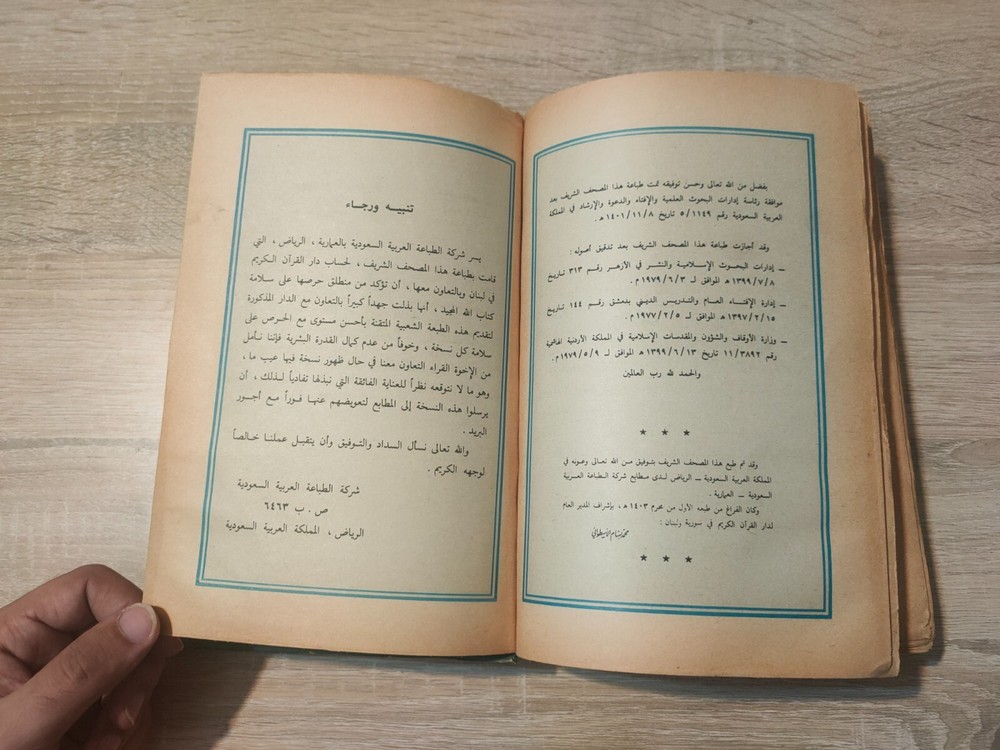 بفضل من الله تعالى وحسن توفيقه تمت طباعة هذا المصحف الشريف بعد
موافقة رئاسة إدارات البحوث العلمية والإفتاء والدعوة والإرشاد في المملكة
العربية السعودية رقم ٥/١١٤٩ تاريخ ١٤٠١/١١/٨ هـ .
وقد أجازت طباعة هذا المصحف الشريف بعد تدقيق أصوله :
– إدارات البحوث الإسلامية والنشر في الأزهر رقم ٣١٣ تاريخ
١٣٩٩/٧/٨ هـ الموافق لـ ١٩٧٩/٦/٣ م .
– إدارة الإفتاء العام والتدريس الديني بدمشق رقم ١٤٤ تاريخ
١٣٩٧/٢/١٥ هـ الموافق لـ ١٩٧٧/٢/٥ م .
– وزارة الأوقاف والشؤون والمقدسات الإسلامية في المملكة الأردنية الهاشمية
رقم ١١/٣٨٩٢ تاريخ ١٣٩٩/٦/١٣ هـ الموافق لـ ١٩٧٩/٥/٩ م .
والحمد لله رب العالمين
★ ★ ★
وقد تم طبع هذا المصحف الشريف بتوفيق من الله تعالى وعونه في
المملكة العربية السعودية – الرياض لدى مطابع شركة الطباعة العربية
السعودية – العمارية .
وكان الفراغ من طبعه الأول من محرم ١٤٠٣ هـ ، بإشراف المدير العام
لدار القرآن الكريم في سورية ولبنان :
محمد بسام الأسطواني
★ ★ ★
تنبيه ورجاء
يسر شركة الطباعة العربية السعودية بالعمارية ، الرياض ، التي
قامت بطباعة هذا المصحف الشريف ، لحساب دار القرآن الكريم
في لبنان وبالتعاون معها ، أن تؤكد من منطلق حرصها على سلامة
كتاب الله المجيد ، أنها بذلت جهداً كبيراً بالتعاون مع الدار المذكورة
لتقديم هذه الطبعة الشعبية المتقنة بأحسن مستوى مع الحرص على
سلامة كل نسخة ، وخوفاً من عدم كمال القدرة البشرية فإننا نأمل
من الإخوة القراء التعاون معنا في حال ظهور نسخة فيها عيب ما ،
وهو ما لا نتوقعه نظراً للعناية الفائقة التي نبذلها تفادياً لذلك ، أن
يرسلوا هذه النسخة إلى المطابع لتعويضهم عنها فوراً مع أجور
البريد .
والله تعالى نسأل السداد والتوفيق وأن يتقبل عملنا خالصاً
لوجهه الكريم .
شركة الطباعة العربية السعودية
ص . ب ٦٤٦٣
الرياض ، المملكة العربية السعودية